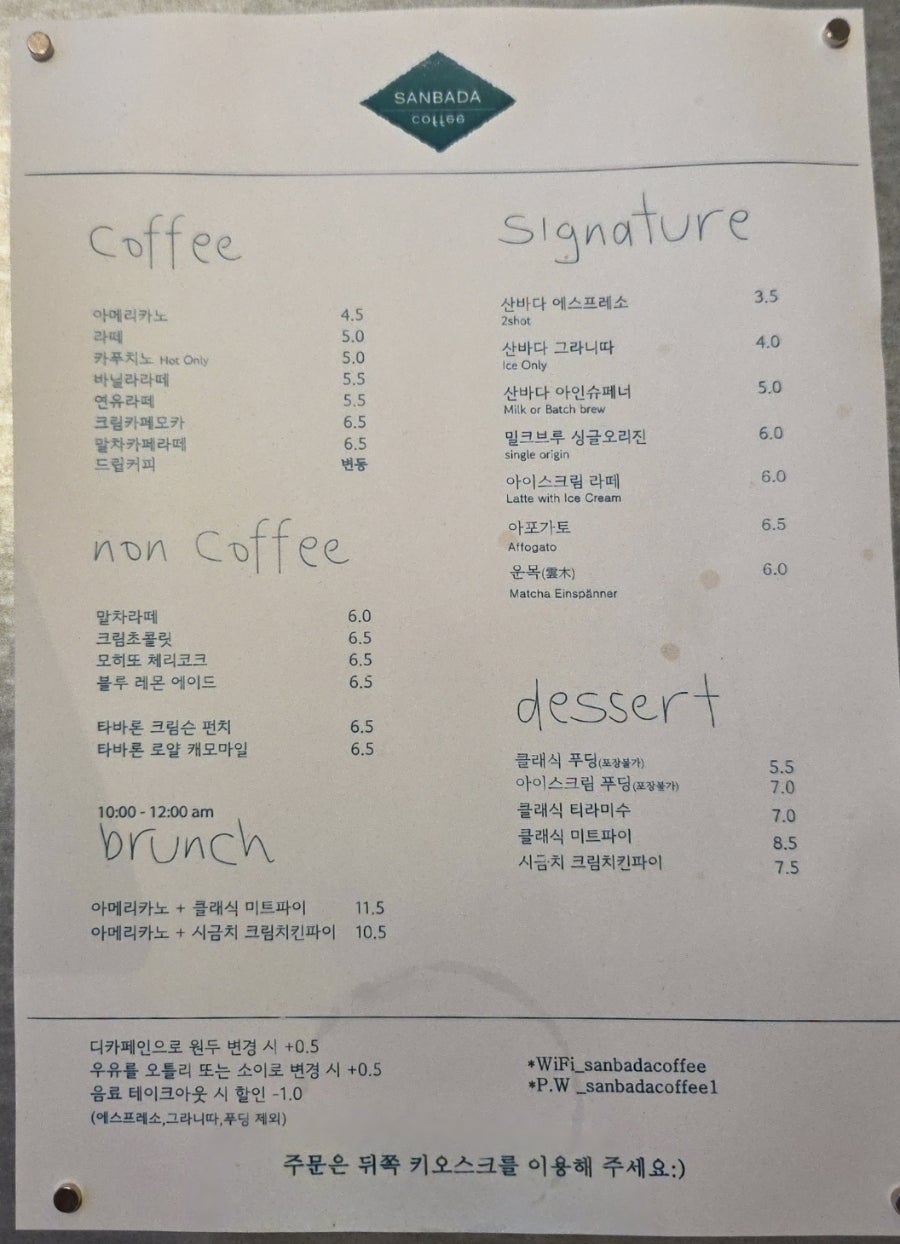 SANBADA
coffee
coffee
아메리카노 4.5
라떼 5.0
카푸치노 Hot Only 5.0
바닐라라떼 5.5
연유라떼 5.5
크림카페모카 6.5
말차카페라떼 6.5
드립커피 변동
non coffee
말차라떼 6.0
크림초콜릿 6.5
모히또 체리코크 6.5
블루 레몬 에이드 6.5
타바론 크림슨 펀치 6.5
타바론 로얄 캐모마일 6.5
10:00 - 12:00 am
brunch
아메리카노 + 클래식 미트파이 11.5
아메리카노 + 시금치 크림치킨파이 10.5
signature
산바다 에스프레소 3.5
2shot
산바다 그라니따 4.0
Ice Only
산바다 아인슈페너 5.0
Milk or Batch brew
밀크브루 싱글오리진 6.0
single origin
아이스크림 라떼 6.0
Latte with Ice Cream
아포가토 6.5
Affogato
운목(雲木) 6.0
Matcha Einspänner
dessert
클래식 푸딩(포장불가) 5.5
아이스크림 푸딩(포장불가) 7.0
클래식 티라미수 7.0
클래식 미트파이 8.5
시금치 크림치킨파이 7.5
디카페인으로 원두 변경 시 +0.5
우유를 오틀리 또는 소이로 변경 시 +0.5
음료 테이크아웃 시 할인 -1.0
(에스프레소,그라니따,푸딩 제외)
*WiFi_sanbadacoffee
*P.W _sanbadacoffee1
주문은 뒤쪽 키오스크를 이용해 주세요:)